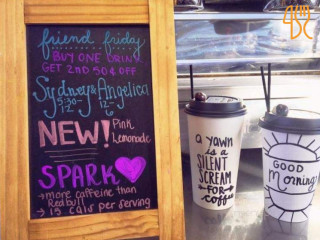 friend friday
BUY ONE DRINK
GET 2nd 50¢ OFF
Sydney & Angelica
5:30-
1-2
12-6
NEW! Pink
Lemonade
SPARK
→ more caffeine than
Red bull
→ 15 cals per serving
a yawn
is a
SILENT
SCREAM
-FOR-
coffee
GOOD
Morning!